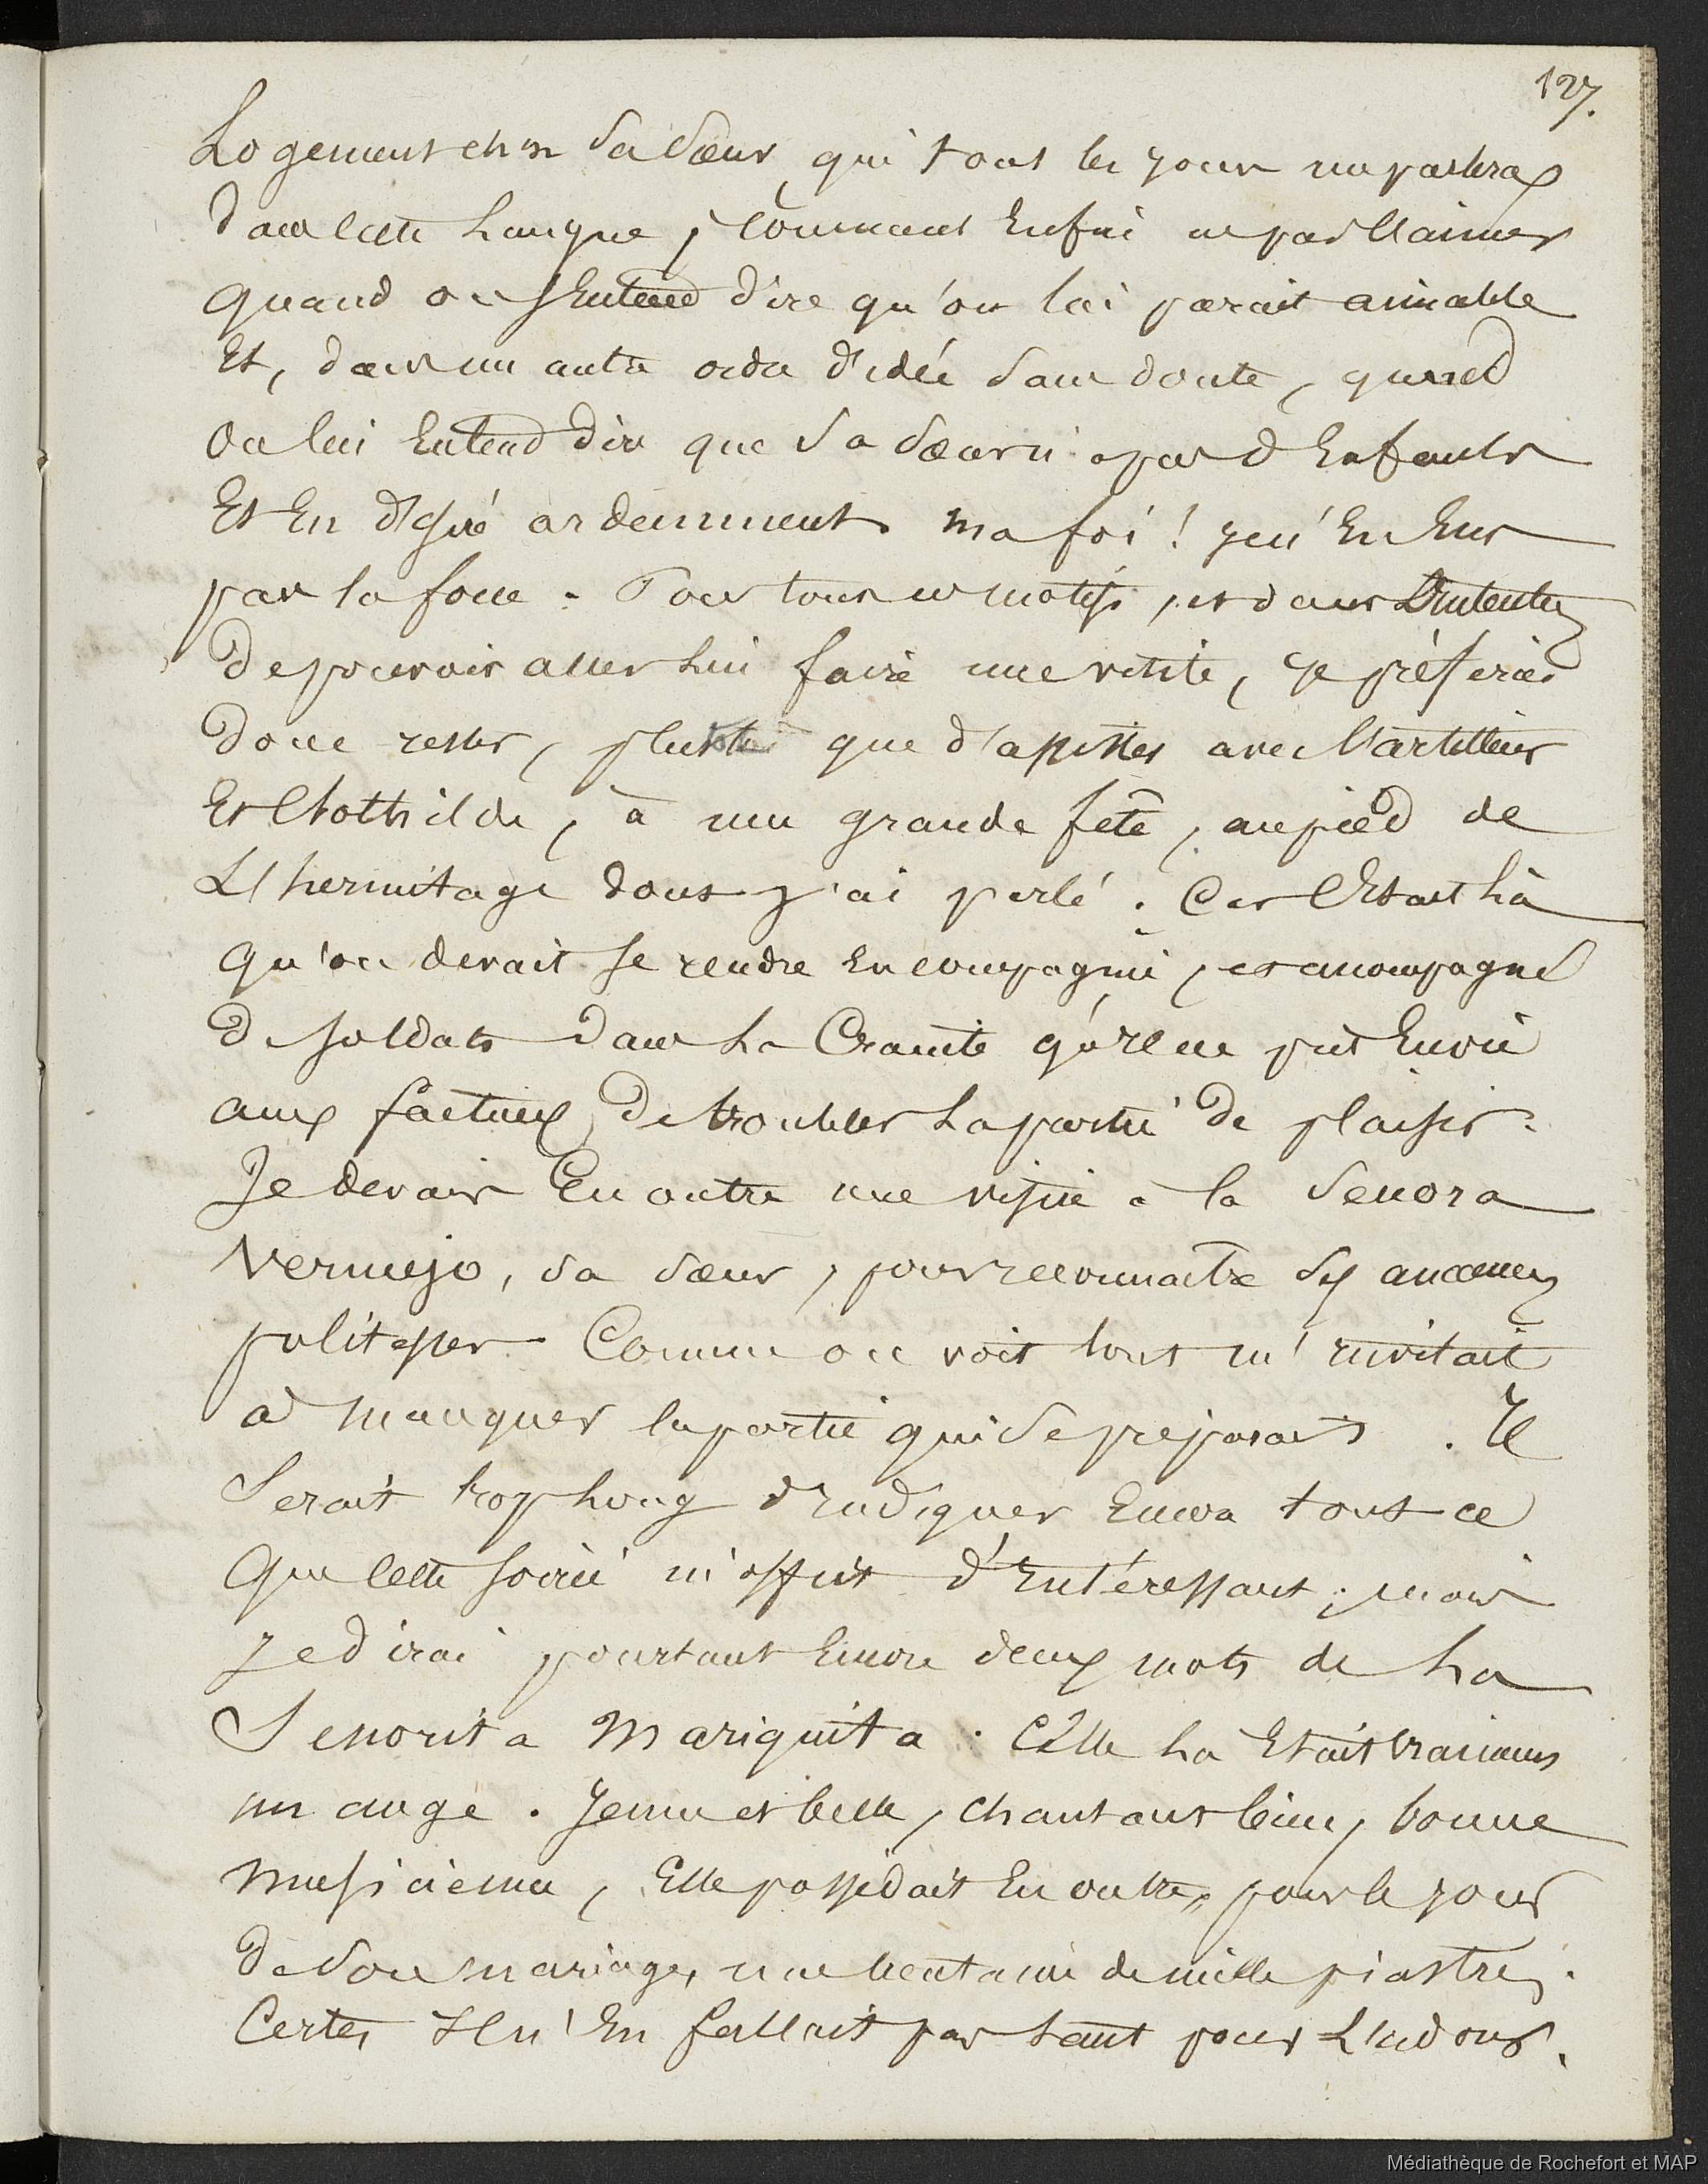 127.
Logement chez Sa Sœur, qui tous les jours me parlera
dans cette Langue ; Comment Enfin ne pas l'aimer
quand on s'entend dire qu'on lui parait aimable
Et, dans un autre ordre d'idée Sans doute, quand
On lui Entend dire que Sa Sœur n'a pas d'Enfants
Et En désire ardemment. Ma foi ! je n'En Eus
pas la force. Pour tous ces motifs, et dans L'intention
De pouvoir aller Lui faire une visite, je préférai
donc rester, plutôt que d'assister avec l'artilleur
Et Clothilde, à une grande fête, au pied de
L'hermitage dont j'ai parlé. Car C'Etait Là
qu'on devait se rendre En compagnie, et accompagné
De soldats dans La Crainte qu'il ne prit Envie
aux factieux De troubler La partie de plaisir.
Je devais En outre une visite à la Senora
Vermejo, Sa Sœur, pour reconnaître Ses anciennes
politesses. Comme on voit tout m'invitait
à manquer la partie qui Se préparait. Il
Serait trop Long d'indiquer Encore tout ce
Que Cette soirée m'offrit d'intéressant ; mais
je dirai pourtant Encore deux mots de La
Senorita Mariquita. Celle La Etait vraiment
un ange. Jeune et belle, chantant bien, bonne
Musicienne, Elle possédait En outre, pour le jour
De Son mariage, une trentaine de mille piastres.
Certes Il n'En fallait pas tant pour L'adorer.
Médiathèque de Rochefort et MAP